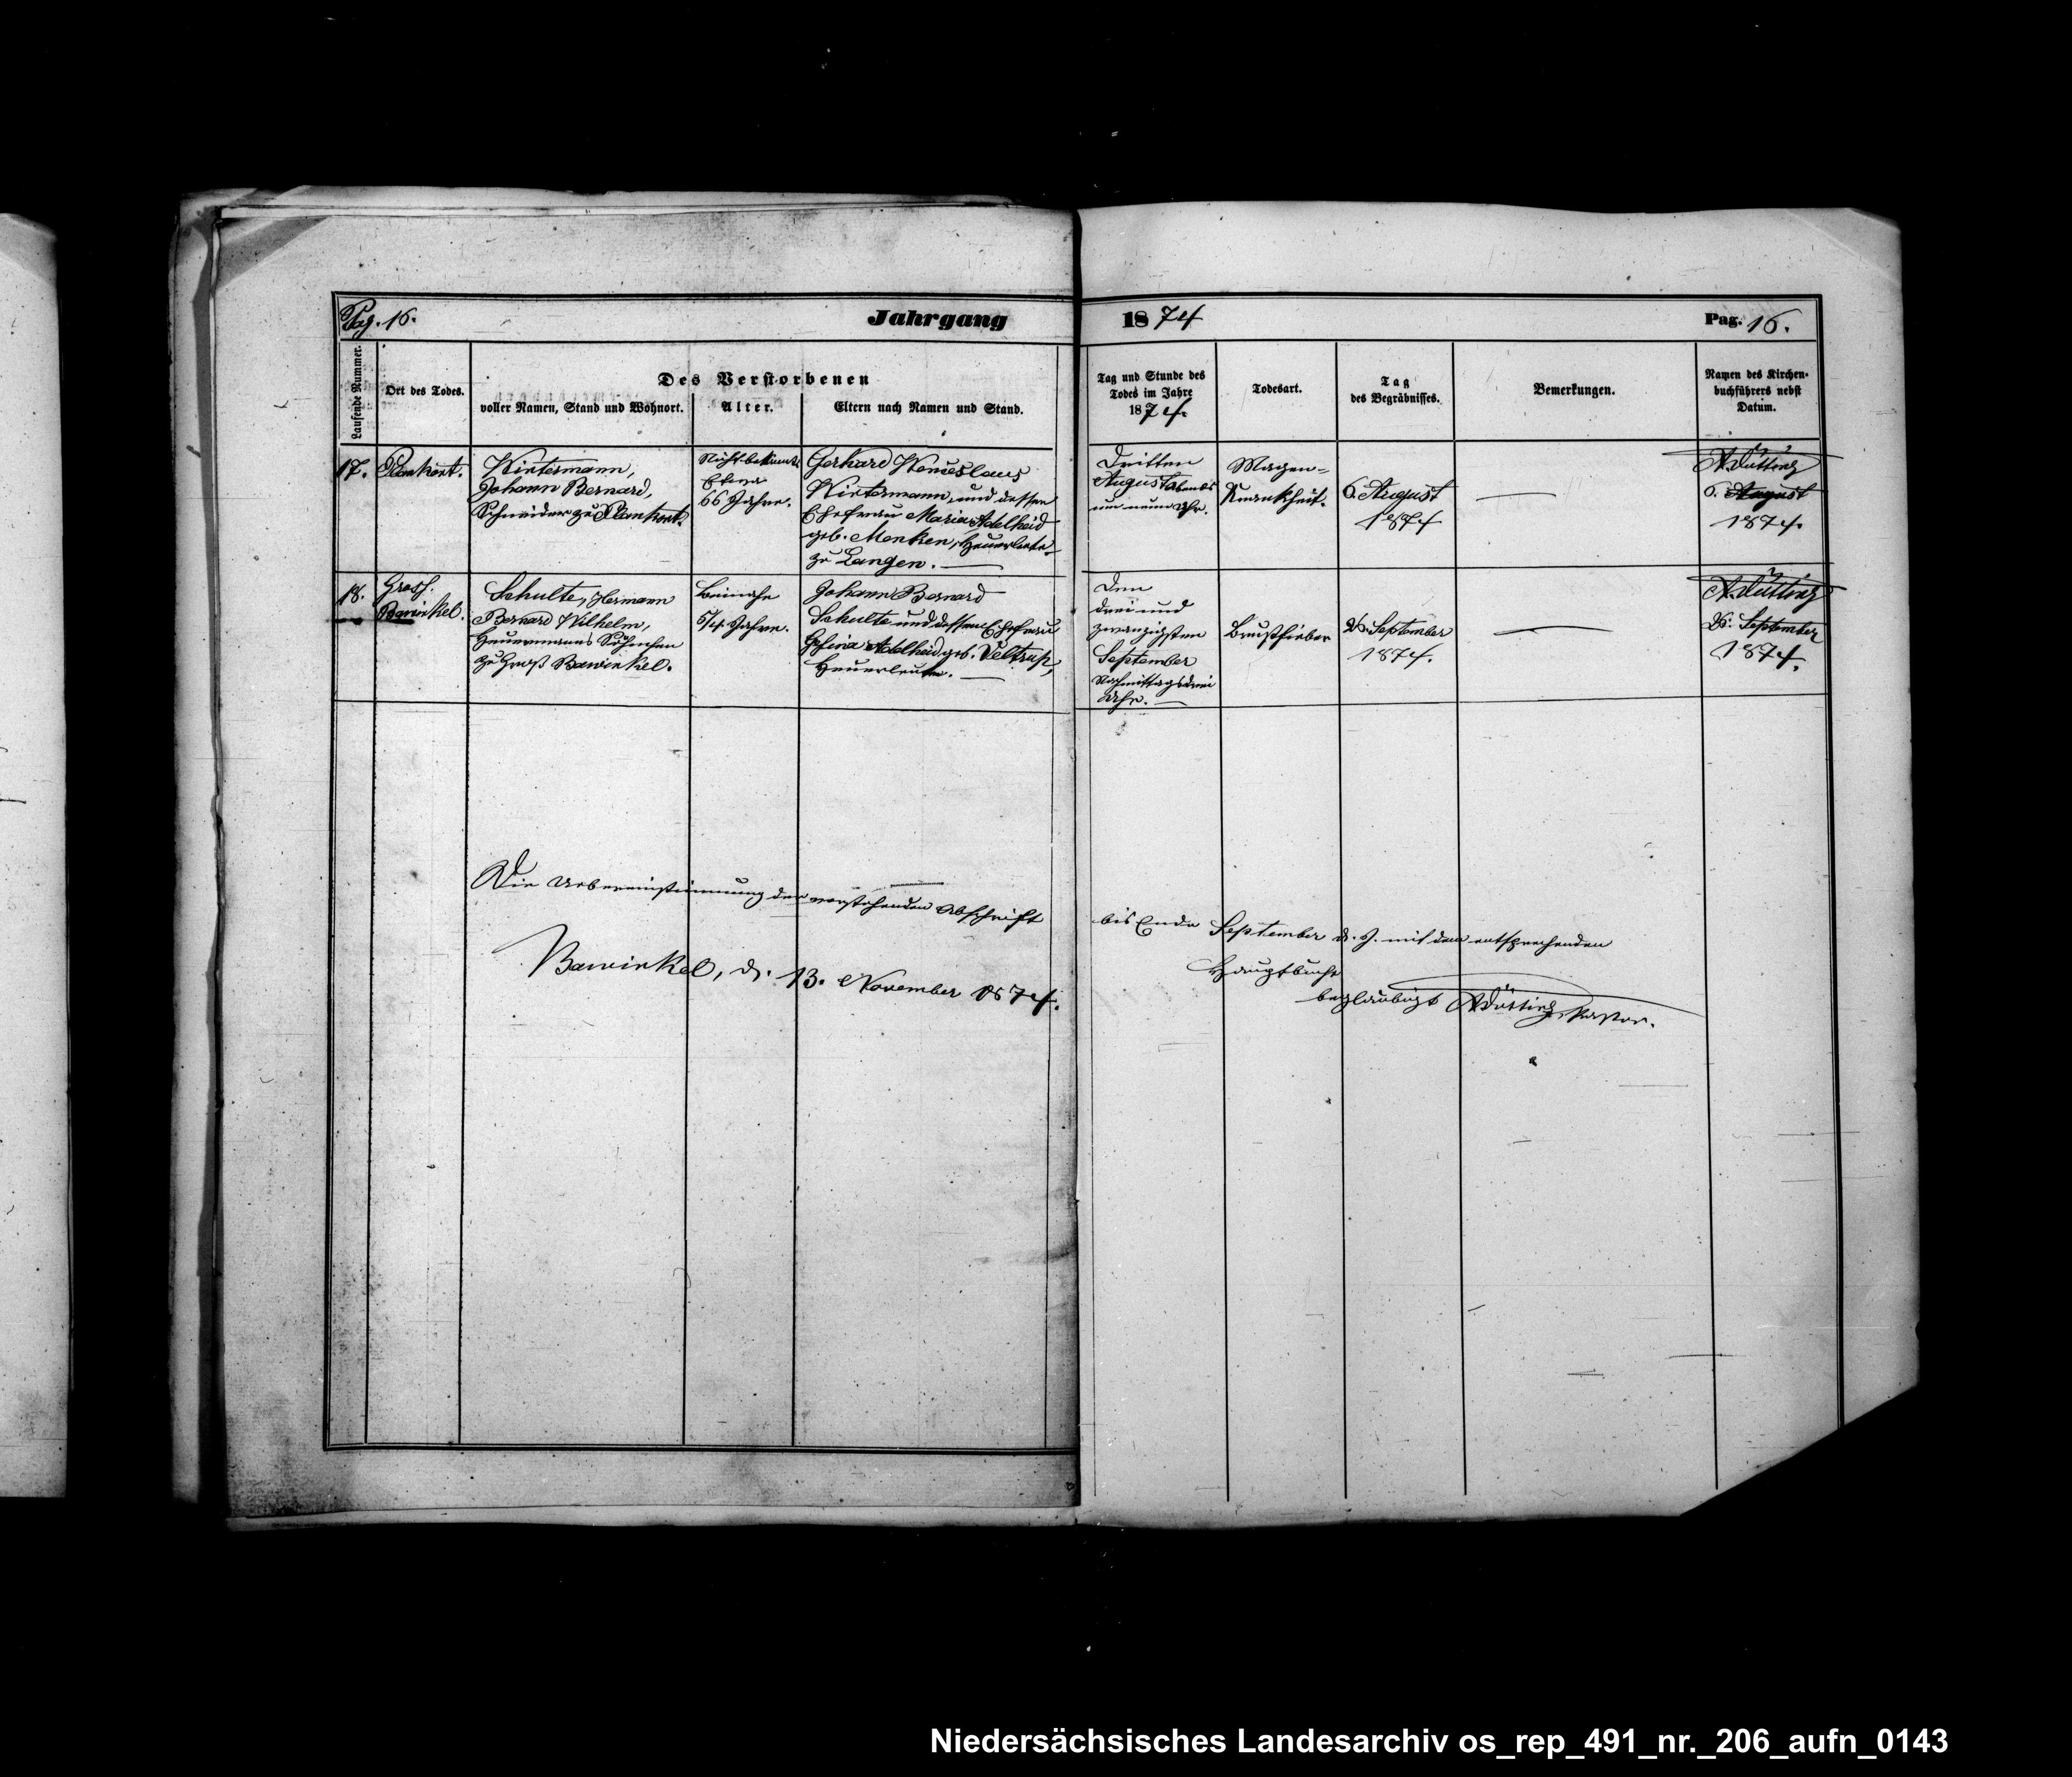 Pag. 16.
Jahrgang
1874
Pag. 16.
Laufende Nummer.
Ort des Todes.
Des Verstorbenen
voller Namen, Stand und Wohnort.
Alter.
Eltern nach Namen und Stand.
Tag und Stunde des
Todes im Jahre
1874.
Todesart.
Tag
des Begräbnisses.
Bemerkungen.
Namen des Kirchen-
buchführers nebst
Datum.
17.
Plankort.
Wintermann,
Johann Bernard,
Schneider zu Plankort.
Nicht bekannt.
Etwa
66 Jahre.
Gerhard Wenceslaus
Wintermann und dessen
Ehefrau Maria Adelheid
geb. Menken, Heuerleute
zu Langen.
Dritten
August Abends
um neun Uhr.
Magen-
Krankheit.
6. August
1874
—
A Dütting
6. August
1874.
18.
Gross
Bawinkel.
Schulte, Hermann
Bernard Wilhelm,
Heuermanns Söhnchen
zu Groß Bawinkel.
Beinahe
5/4 Jahre.
Johann Bernard
Schulte und dessen Ehefrau
Gesina Adelheid geb. Veltrup,
Heuerleute.
Den
drei und
zwanzigsten
September
Nachmittags drei
Uhr.
Brustfieber
26. September
1874.
—
A. Dütting
26. September
1874.
Die Uebereinstimmung der vorstehenden Abschrift
bis Ende September d. J. mit dem entsprechenden
Hauptbuche
Bawinkel, d. 13. November 1874.
beglaubigt A Dütting, Pastor.
Niedersächsisches Landesarchiv os_rep_491_nr._206_aufn_0143